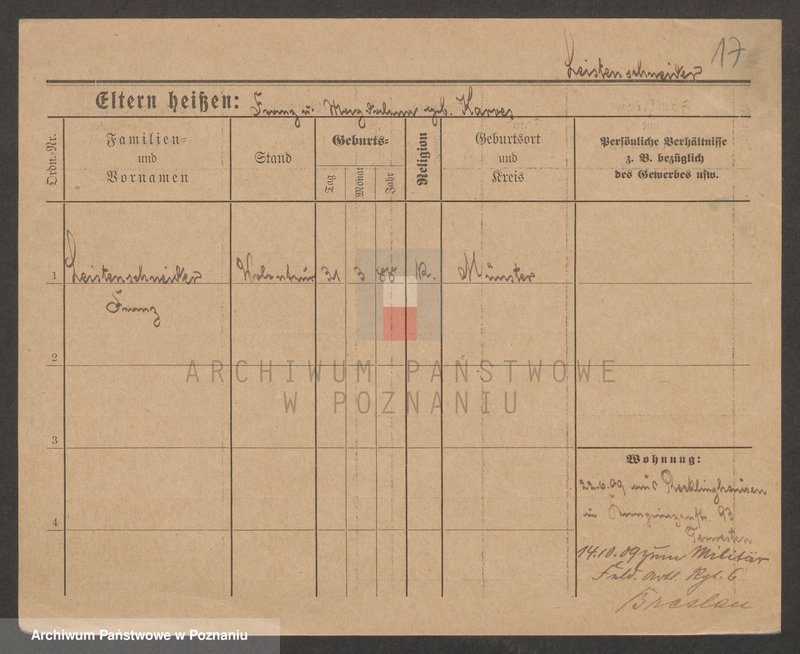 17
Leistenschneider
Eltern heißen: Franz u. Magdalena geb. Karres
Ordn.-Nr.
Familien-
und
Vornamen
Stand
Geburts-
Tag
Monat
Jahr
Religion
Geburtsort
und
Kreis
Persönliche Verhältnisse
z. B. bezüglich
des Gewerbes usw.
1 Leistenschneider Volontär 31 3 88 K. Münster
Franz
2
ARCHIWUM PAŃSTWOWE
W POZNANIU
3
Wohnung:
22.6.09 aus Recklinghausen
in Kronprinzenstr. 93
4
14.10.09 zum Militär
Feld. Artl. Rgt. 6
Breslau
Archiwum Państwowe w Poznaniu